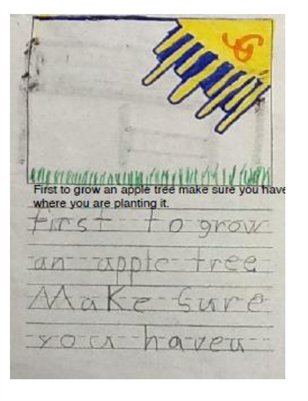 First to grow an apple tree make sure you have
where you are planting it.
first to grow
an apple tree
Make Sure
you haveu